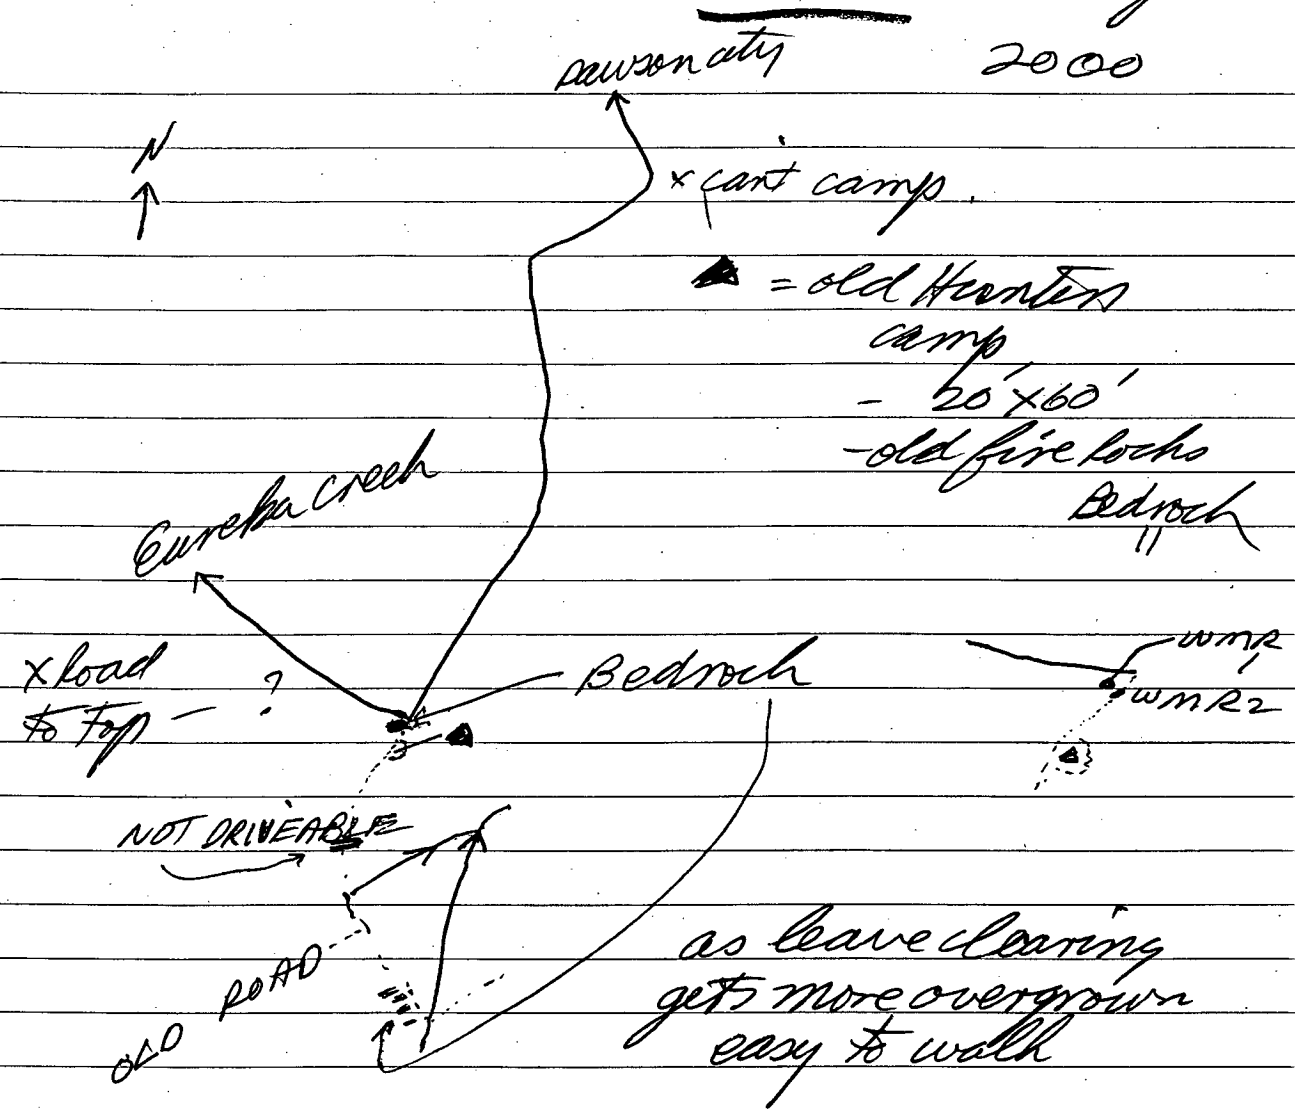 Dawson city
2000
N
x can't camp.
= old Hunters
camp
- 20'x60'
- old fire Rocks
Bedrock
"
Eureka Creek
x Road
to Top - ?
Bedrock
WMR
1
WMR2
NOT DRIVEABLE
OLD ROAD
as leave clearing
gets more overgrown
easy to walk